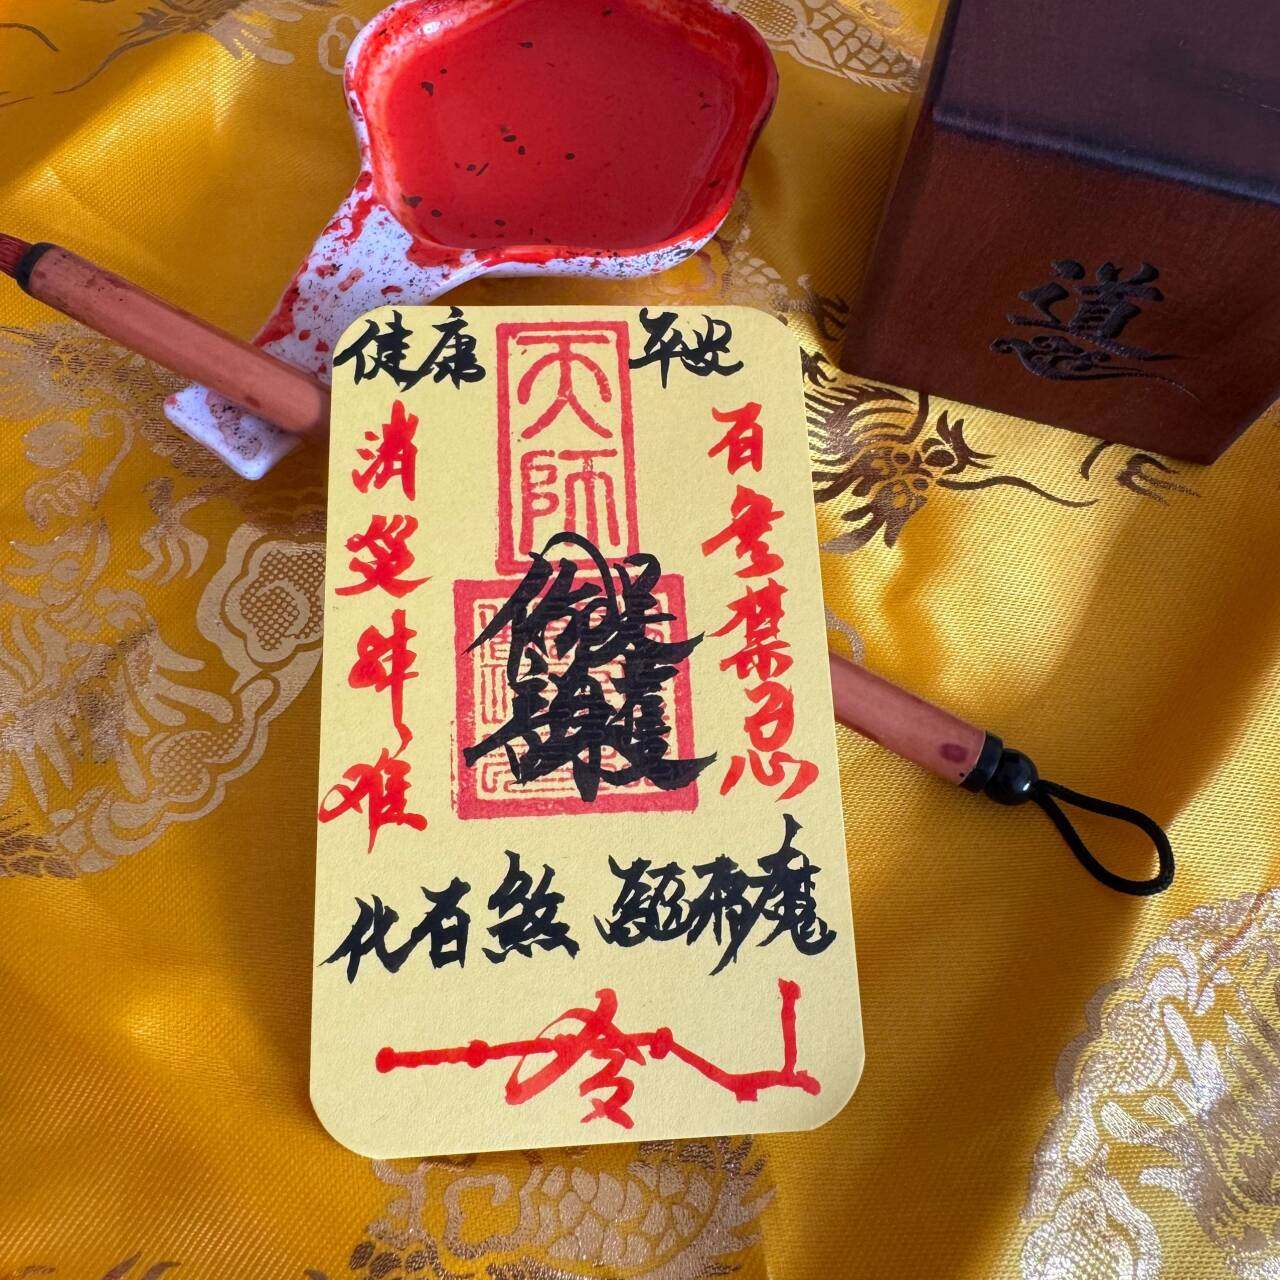 健康
平安
天師
百無禁忌
消災解難
化百煞
驅邪魔
道